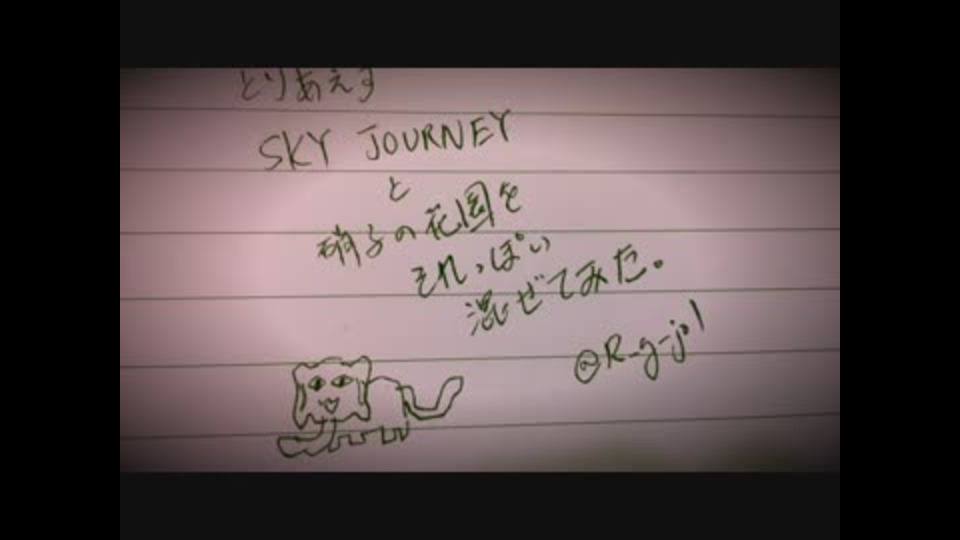 とりあえず
SKY JOURNEY
と
硝子の花園を
それっぽい
混ぜてみた。
@R_g_jo1